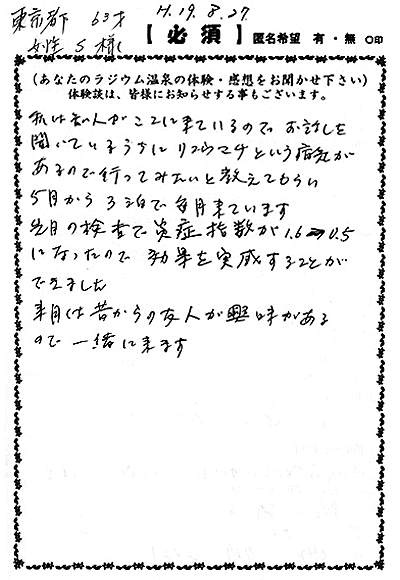 東京都 63才 H.19.8.27
女性 S様 【必須】 匿名希望 有・無 ○印
(あなたのラジウム温泉の体験・感想をお聞かせ下さい)
体験談は、皆様にお知らせする事もございます。
私は知人がここに来ているので、お話しを
聞いているうちにリウマチという病気が
あるので行ってみたいと教えてもらい
5月から3泊で毎月来ています
先日の検査で炎症指数が1.6⇒0.5
になったので効果を実感することが
できました
来月は昔からの友人が興味がある
ので一緒に来ます